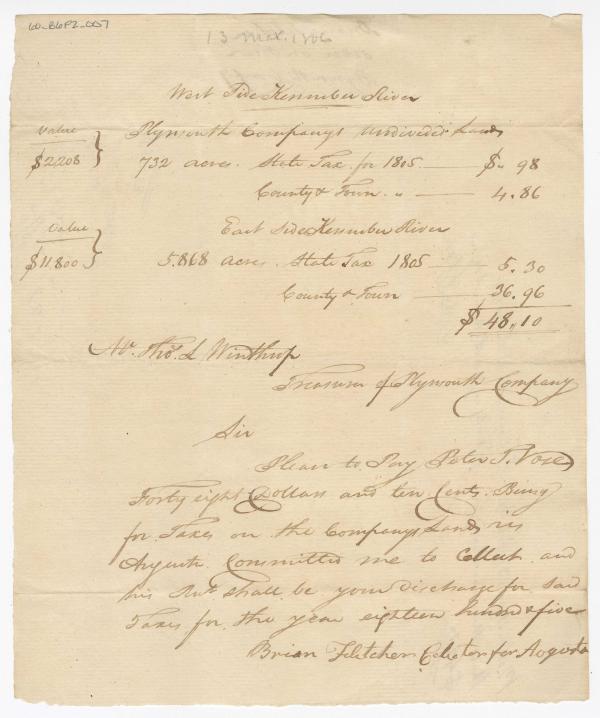 60_B6P2_007
13 Mar. 1806
West Side Kennebec River
Value Plymouth Companys undivided Lands
$2208 } 732 acres. State Tax for 1805 — $" 98
County & Town " — 4.86
Value East Side Kennebec River
$11.800 } 5.868 acres. State Tax 1805 — 5.30
County & Town — 36.96
$48"10
Mr. Thos. L Winthrop
Treasurer of Plymouth Company
Sir
Please to Pay Peter T. Vose
Forty eight Dollars and ten Cents. Being
for Taxes on the Companys Lands in
Augusta. Committed me to Collect and
his Rect. shall be your discharge for said
Taxes for the year eighteen hundred & five
Brian Fletcher Colector for Augusta